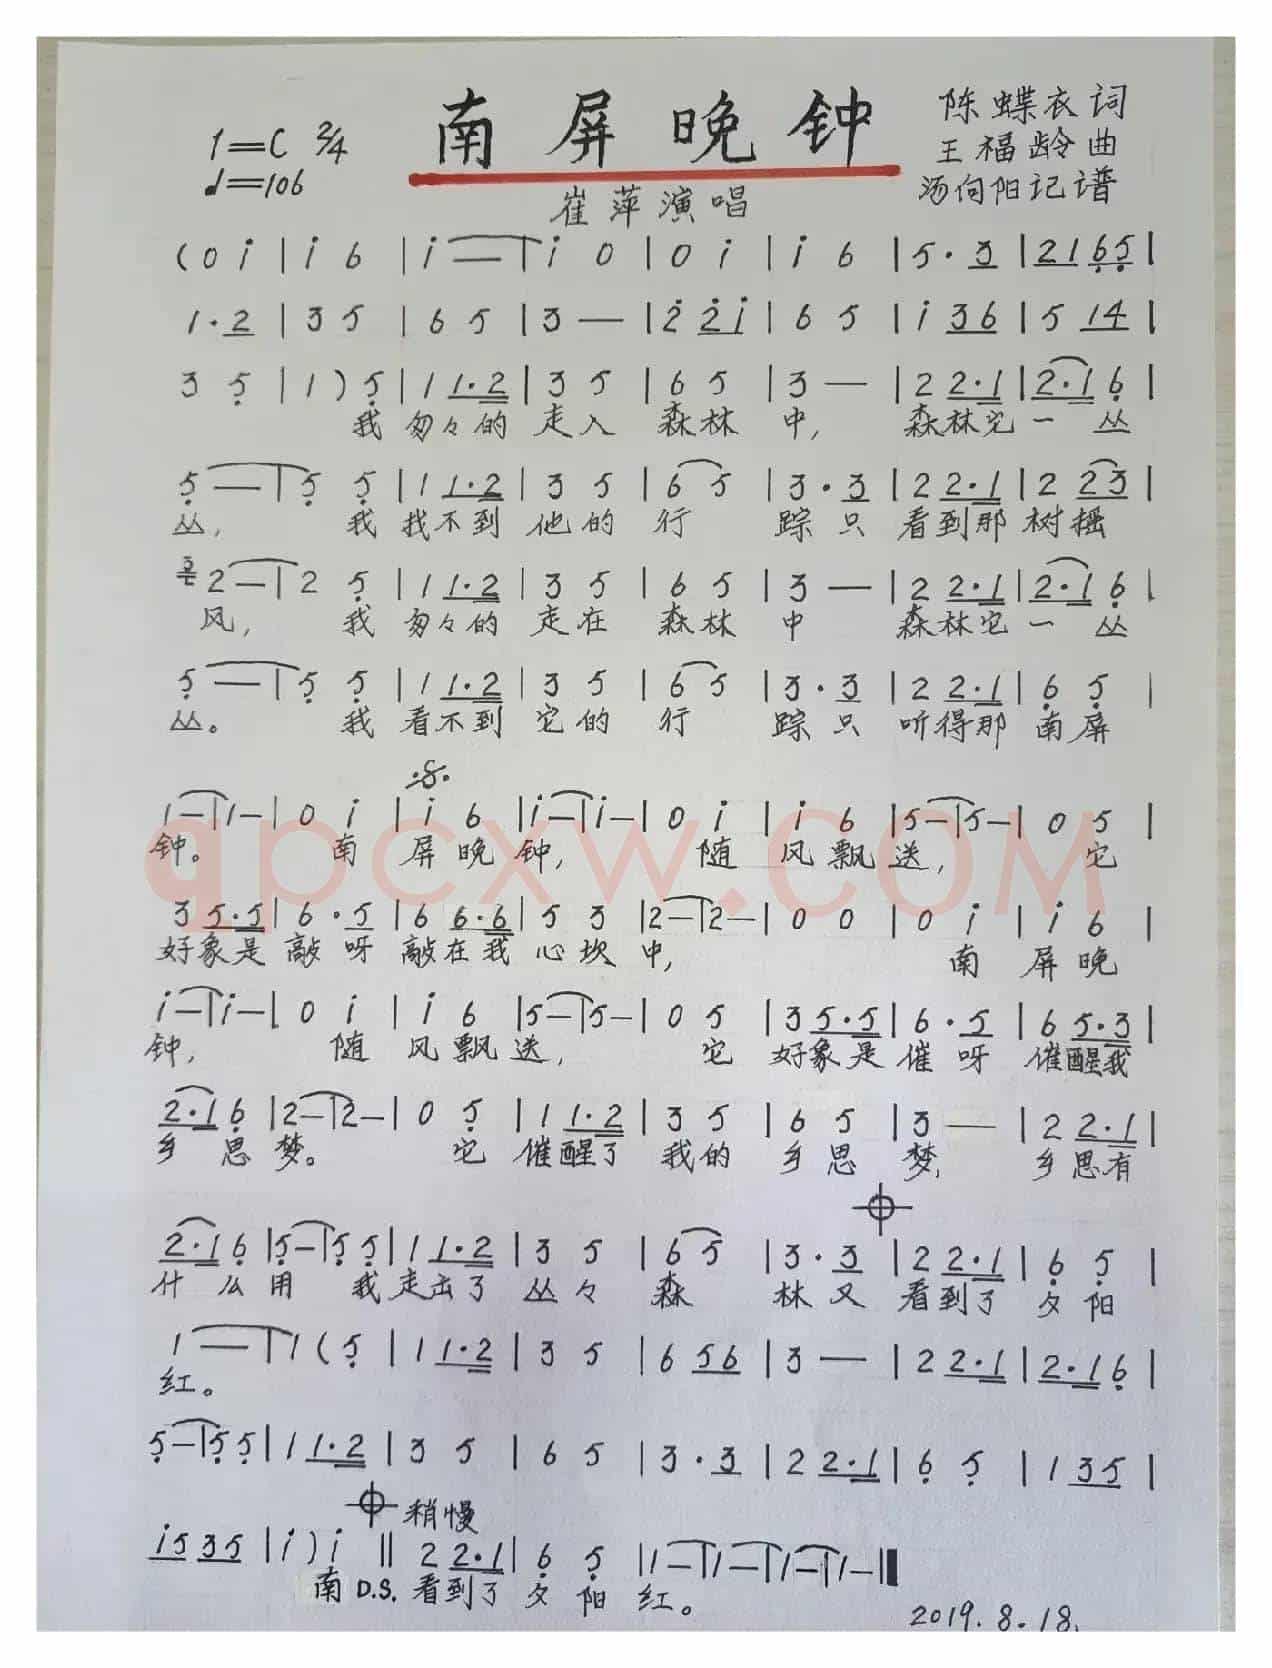 南屏晚钟
1=C 2/4
♩=106
陈蝶衣词
王福龄曲
汤向阳记谱
崔萍演唱
(0 i | i 6 | i — | i 0 | 0 i | i 6 | 5·3 | 21 65 |
1·2 | 3 5 | 6 5 | 3 — | 2 2i | 6 5 | i 36 | 5 14 |
3 5 | 1) 5 | 1 1·2 | 3 5 | 6 5 | 3 — | 2 2·1 | 2·1 6 |
我 匆々的 走入 森林 中, 森林它一 丛
5 — | 5 5 | 1 1·2 | 3 5 | 6 5 | 3·3 | 2 2·1 | 2 23 |
丛, 我 找不到 他的 行 踪只 看到那 树摇
2 — | 2 5 | 1 1·2 | 3 5 | 6 5 | 3 — | 2 2·1 | 2·1 6 |
风, 我 匆々的 走在 森林 中 森林它一 丛
5 — | 5 5 | 1 1·2 | 3 5 | 6 5 | 3·3 | 2 2·1 | 6 5 |
丛。 我 看不到 它的 行 踪只 听得那 南屏
1 — | 1 — | 0 i | i 6 | i — | i — | 0 i | i 6 | 5 — | 5 — | 0 5 |
钟。 南 屏晚 钟, 随 风飘 送, 它
3 5·5 | 6·5 | 6 6·6 | 5 3 | 2 — | 2 — | 0 0 | 0 i | i 6 |
好象是 敲呀 敲在我 心坎 中, 南 屏晚
i — | i — | 0 i | i 6 | 5 — | 5 — | 0 5 | 3 5·5 | 6·5 | 6 5·3 |
钟, 随 风飘 送, 它 好象是 催呀 催醒我
2·1 6 | 2 — | 2 — | 0 5 | 1 1·2 | 3 5 | 6 5 | 3 — | 2 2·1 |
乡思 梦。 它 催醒了 我的 乡思 梦, 乡思有
2·1 6 | 5 — | 5 5 | 1 1·2 | 3 5 | 6 5 | 3·3 | 2 2·1 | 6 5 |
什么 用 我 走出了 丛々 森 林又 看到了 夕阳
1 — | 1 (5 | 1 1·2 | 3 5 | 6 56 | 3 — | 2 2·1 | 2·1 6 |
红。
5 — | 5 5 | 1 1·2 | 3 5 | 6 5 | 3·3 | 2 2·1 | 6 5 | 1 35 |
稍慢
i5 35 | i) i || 2 2·1 | 6 5 | 1 — | 1 — | 1 — | 1 — ||
南 D.S. 看到了 夕阳 红。
2019.8.18.
qpcxw.COM